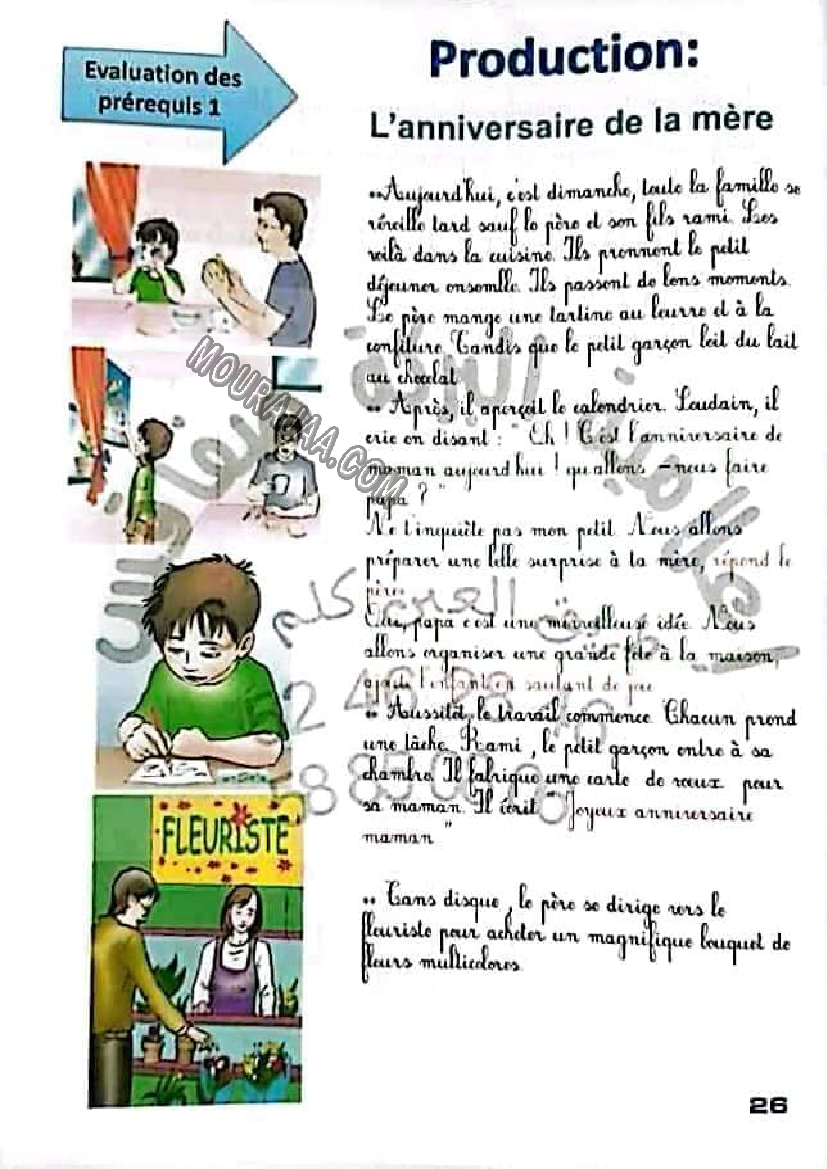 Evaluation des
prérequis 1
Production:
L'anniversaire de la mère
"Aujourd'hui, c'est dimanche, toute la famille se
réveille tard sauf le père et son fils rami. Les
voilà dans la cuisine. Ils prennent le petit
déjeuner ensemble. Ils passent de bons moments.
Le père mange une tartine au beurre et à la
confiture. Tandis que le petit garçon boit du lait
au chocolat
" Après, il aperçoit le calendrier. Soudain, il
crie en disant : " Eh ! C'est l'anniversaire de
maman aujourd'hui ! qu'allons - nous faire
papa ? "
Ne t'inquiète pas mon petit. Nous allons
préparer une belle surprise à ta mère, répond le
père.
papa c'est une merveilleuse idée. Nous
allons organiser une grande fête à la maison,
ajoute l'enfant en sautant de joie
" Aussitôt, le travail commence. Chacun prend
une tâche. Rami, le petit garçon entre à sa
chambre. Il fabrique une carte de vœux pour
sa maman. Il écrit " Joyeux anniversaire
maman "
" Tans disque, le père se dirige vers le
fleuriste pour acheter un magnifique bouquet de
fleurs multicolores.
FLEURISTE
MOURAJAA.COM
26